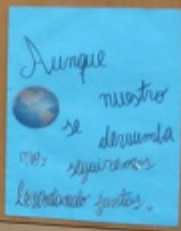 Aunque
nuestro
se derrumba
nos seguiremos
levantando juntos.